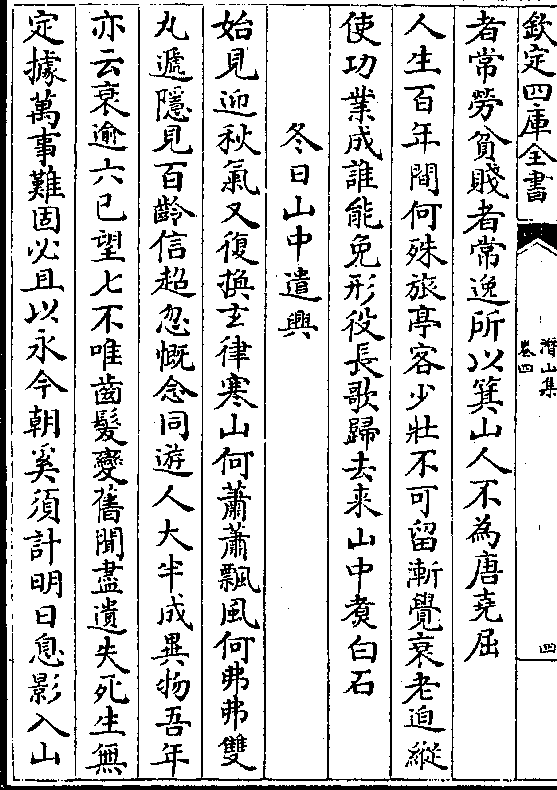 欽定四庫全書
潛山集
卷四
四
者常勞貧賤者常逸所以箕山人不為唐堯屈
人生百年間何殊旅亭客少壯不可留漸覺衰老迫縱
使功業成誰能免形役長歌歸去來山中煑白石
冬日山中遣興
始見迎秋氣又復換玄律寒山何蕭蕭飄風何弗弗雙
丸遞隱見百齡信超忽慨念同遊人大半成異物吾年
亦云衰逾六已望七不唯齒髮變舊聞盡遺失死生無
定據萬事難固必且以永今朝奚須計明日息影入山